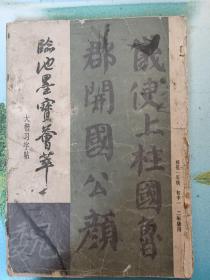 儀使上柱國魯
郡開國公顏
臨池墨寶薈萃
大楷习字帖